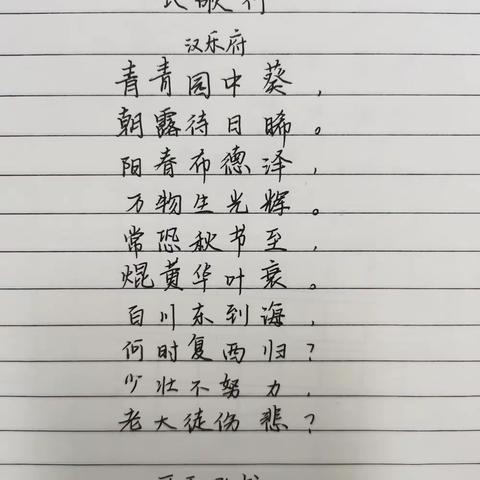 长歌行
汉乐府
青青园中葵，
朝露待日晞。
阳春布德泽，
万物生光辉。
常恐秋节至，
焜黄华叶衰。
百川东到海，
何时复西归？
少壮不努力，
老大徒伤悲？